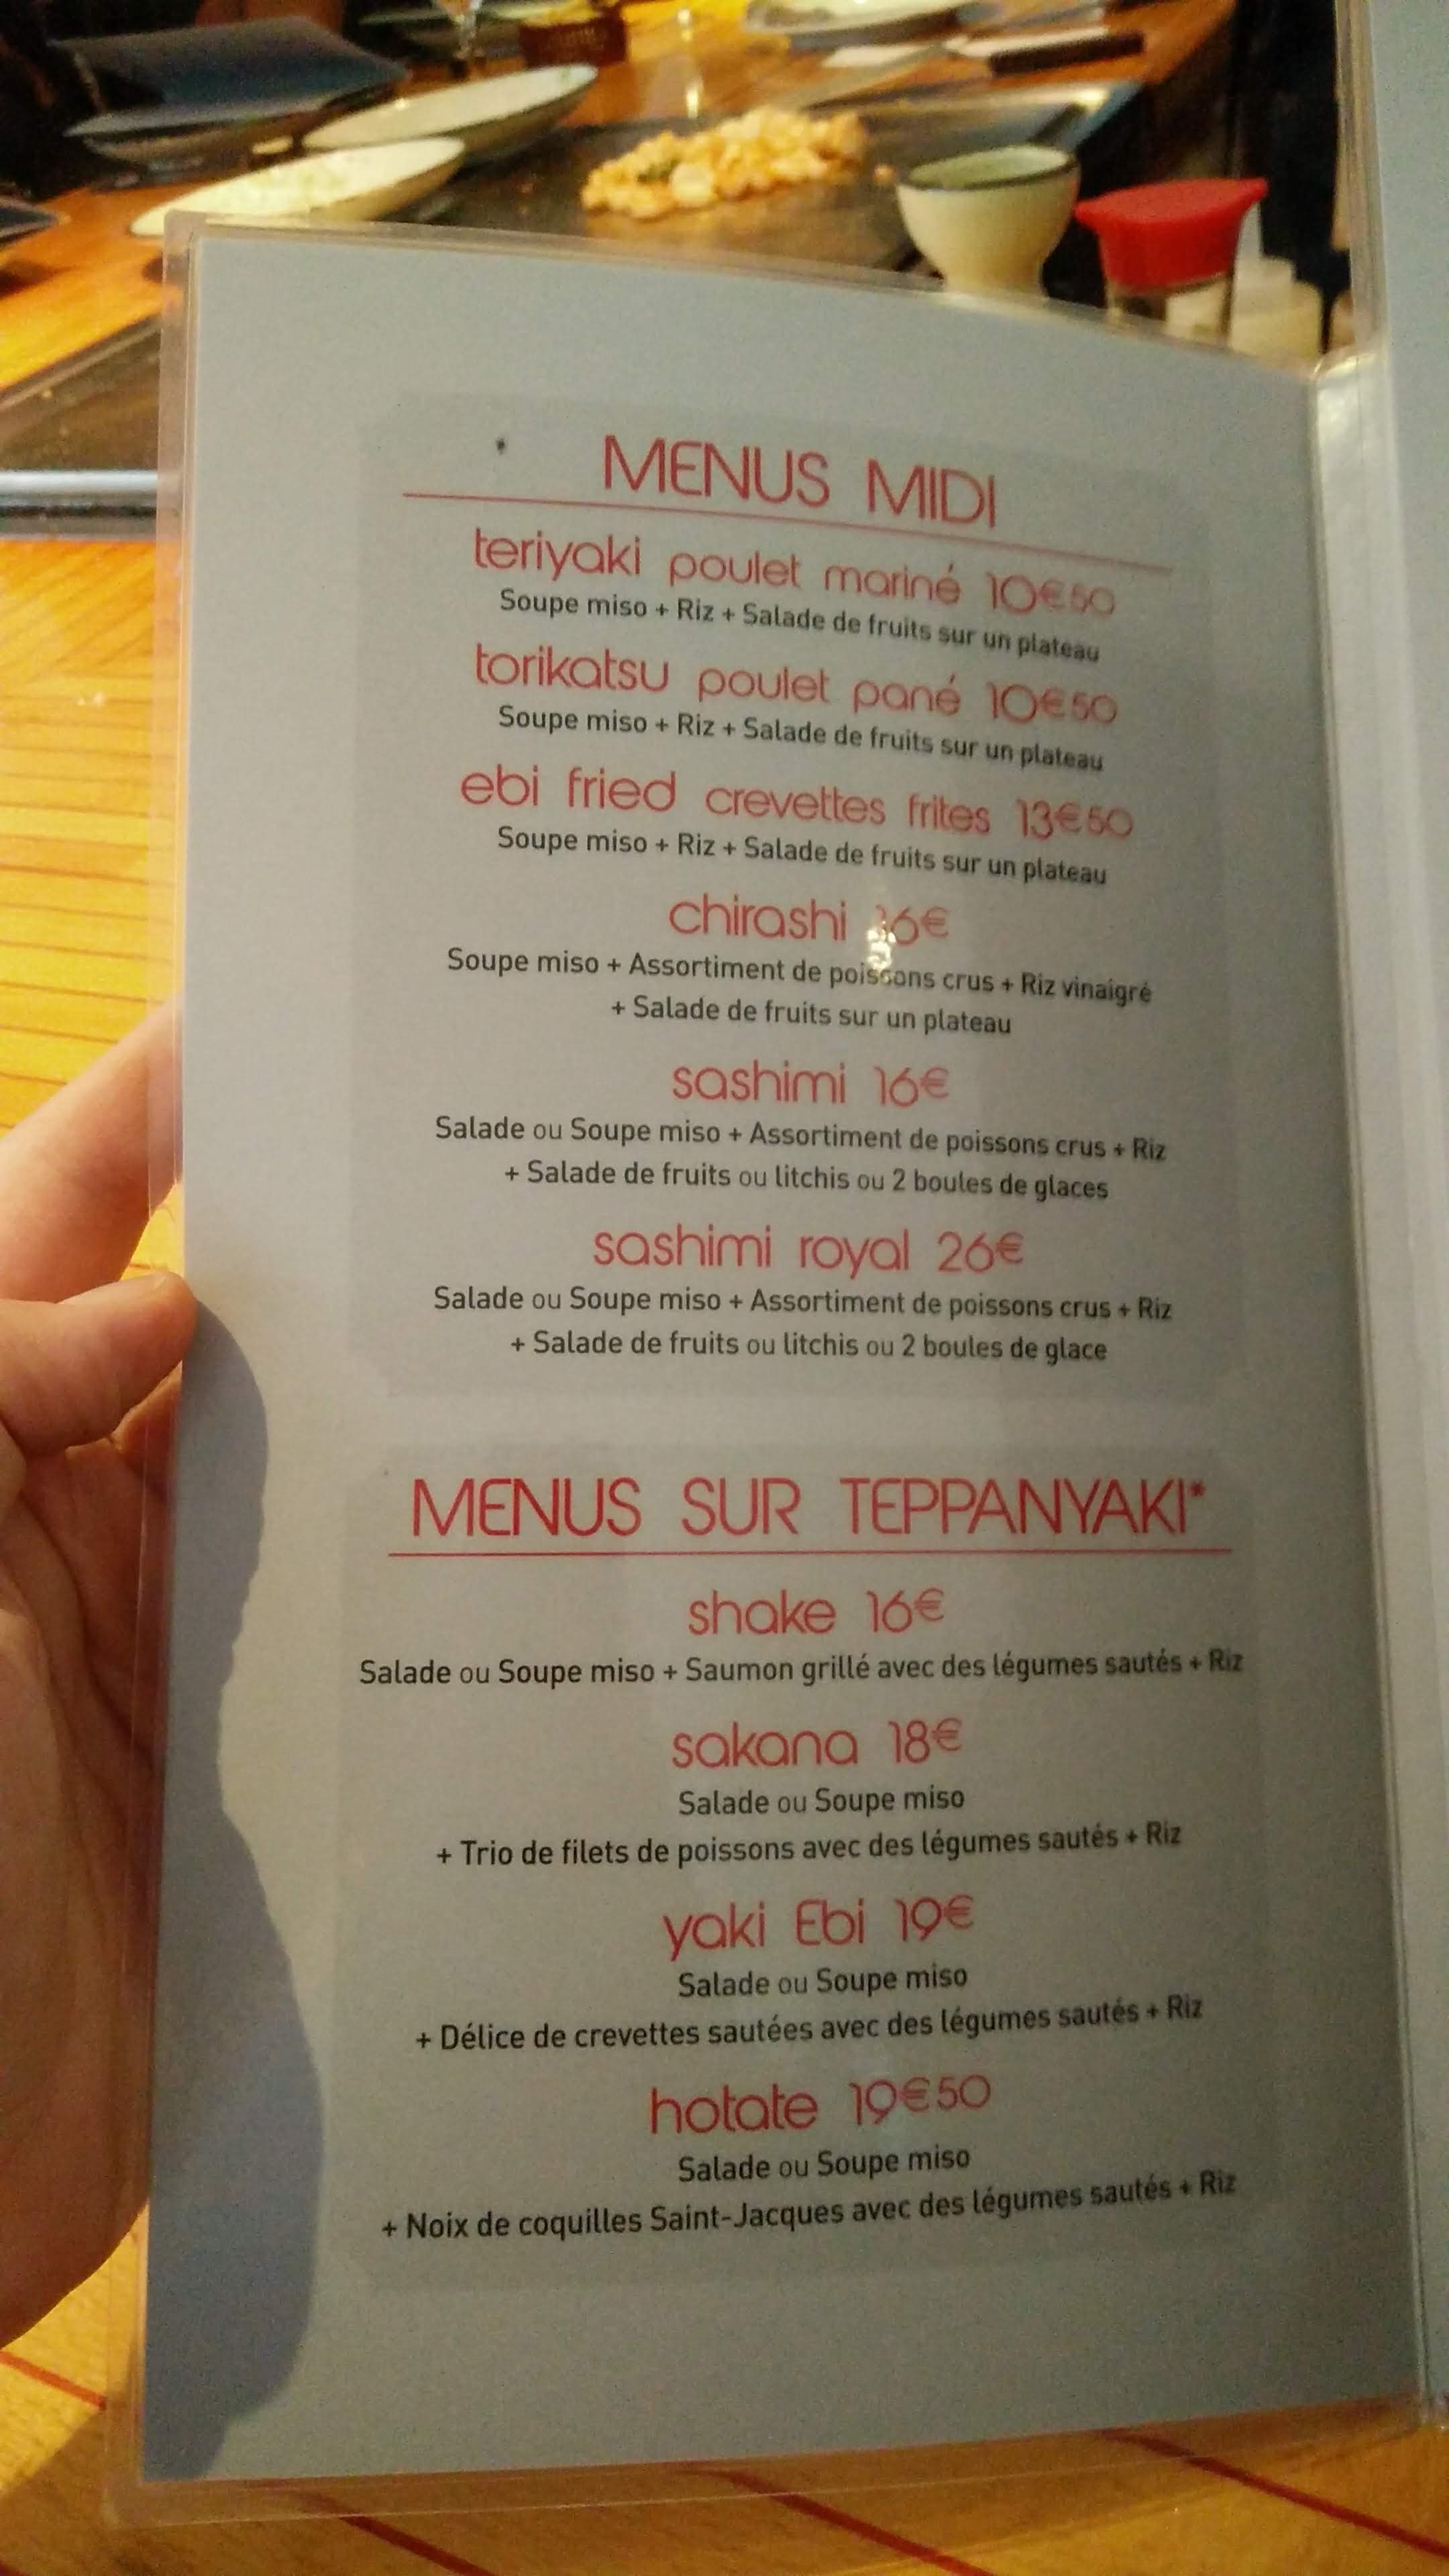 MENUS MIDI
teriyaki poulet mariné 10€50
Soupe miso + Riz + Salade de fruits sur un plateau
torikatsu poulet pané 10€50
Soupe miso + Riz + Salade de fruits sur un plateau
ebi fried crevettes frites 13€50
Soupe miso + Riz + Salade de fruits sur un plateau
chirashi 16€
Soupe miso + Assortiment de poissons crus + Riz vinaigré
+ Salade de fruits sur un plateau
sashimi 16€
Salade ou Soupe miso + Assortiment de poissons crus + Riz
+ Salade de fruits ou litchis ou 2 boules de glaces
sashimi royal 26€
Salade ou Soupe miso + Assortiment de poissons crus + Riz
+ Salade de fruits ou litchis ou 2 boules de glace
MENUS SUR TEPPANYAKI*
shake 16€
Salade ou Soupe miso + Saumon grillé avec des légumes sautés + Riz
sakana 18€
Salade ou Soupe miso
+ Trio de filets de poissons avec des légumes sautés + Riz
yaki Ebi 19€
Salade ou Soupe miso
+ Délice de crevettes sautées avec des légumes sautés + Riz
hotate 19€50
Salade ou Soupe miso
+ Noix de coquilles Saint-Jacques avec des légumes sautés + Riz